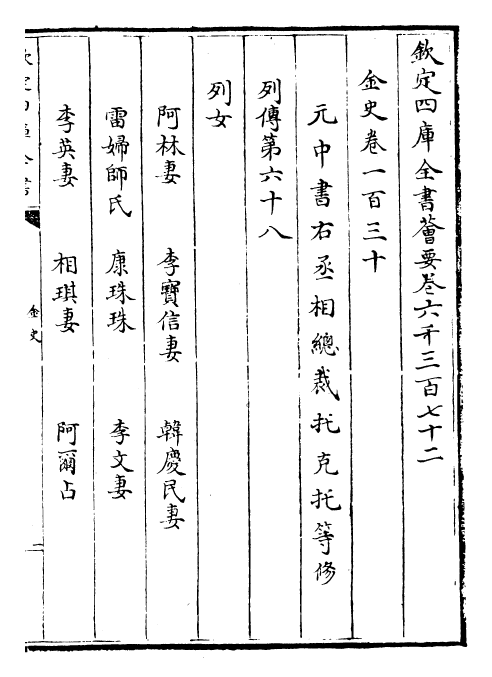 欽定四庫全書薈要卷六千三百七十二
金史卷一百三十
元中書右丞相總裁托克托等修
列傳第六十八
列女
阿林妻 李寶信妻 韓慶民妻
雷婦師氏 康珠珠 李文妻
李英妻 相琪妻 阿爾占
欽定四庫全書
金史